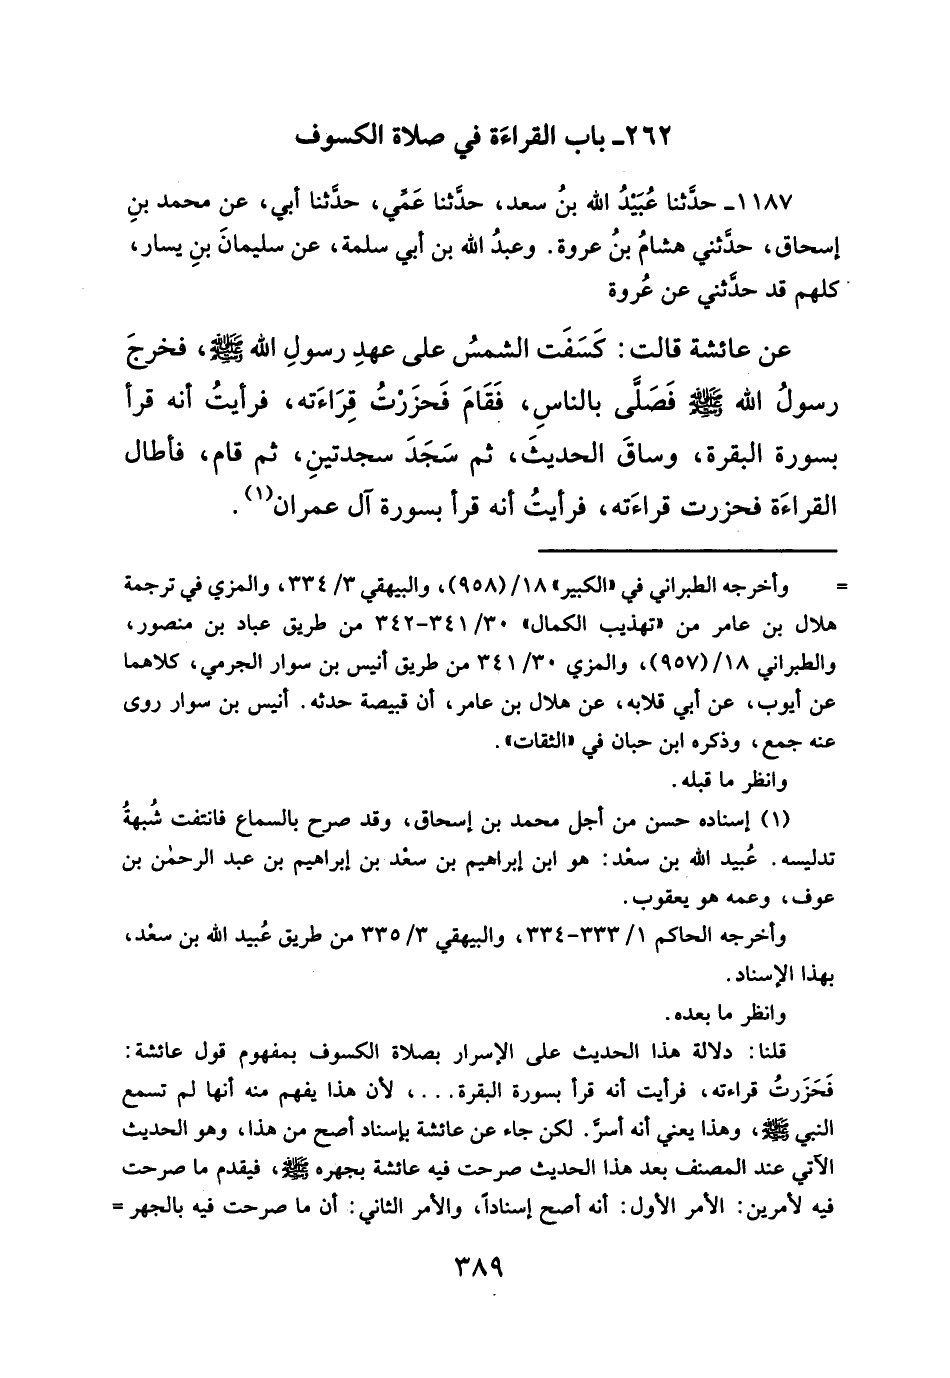 ٢٦٢ـ باب القراءَة في صلاة الكسوف
١١٨٧ـ حدَّثنا عُبَيْدُ الله بنُ سعد، حدَّثنا عَمِّي، حدَّثنا أبي، عن محمد بنِ
إسحاق، حدَّثني هشامُ بنُ عروة. وعبدُ الله بن أبي سلمة، عن سليمانَ بنِ يسار،
كلهم قد حدَّثني عن عُروة
عن عائشة قالت: كَسَفَت الشمسُ على عهدِ رسولِ الله ﷺ، فخرجَ
رسولُ الله ﷺ فَصَلَّى بالناسِ، فَقَامَ فَحزَرْتُ قِرَاءَته، فرأيتُ أنه قرأ
بسورة البقرة، وساقَ الحديثَ، ثم سَجَدَ سجدتينِ، ثم قام، فأطال
القراءَة فحزرت قراءَته، فرأيتُ أنه قرأ بسورة آل عمران(١).
= وأخرجه الطبراني في «الكبير» ١٨/ (٩٥٨)، والبيهقي ٣/ ٣٣٤، والمزي في ترجمة
هلال بن عامر من «تهذيب الكمال» ٣٠/ ٣٤١-٣٤٢ من طريق عباد بن منصور،
والطبراني ١٨/ (٩٥٧)، والمزي ٣٠/ ٣٤١ من طريق أنيس بن سوار الجرمي، كلاهما
عن أيوب، عن أبي قلابه، عن هلال بن عامر، أن قبيصة حدثه. أنيس بن سوار روى
عنه جمع، وذكره ابن حبان في «الثقات».
وانظر ما قبله.
(١) إسناده حسن من أجل محمد بن إسحاق، وقد صرح بالسماع فانتفت شُبهةُ
تدليسه. عُبيد الله بن سعْد: هو ابن إبراهيم بن سعْد بن إبراهيم بن عبد الرحمٰن بن
عوف، وعمه هو يعقوب.
وأخرجه الحاكم ١/ ٣٣٣-٣٣٤، والبيهقي ٣/ ٣٣٥ من طريق عُبيد الله بن سعْد،
بهذا الإسناد.
وانظر ما بعده.
قلنا: دلالة هذا الحديث على الإسرار بصلاة الكسوف بمفهوم قول عائشة:
فَحَزَرتُ قراءته، فرأيت أنه قرأ بسورة البقرة...، لأن هذا يفهم منه أنها لم تسمع
النبي ﷺ، وهذا يعني أنه أسرَّ. لكن جاء عن عائشة بإسناد أصح من هذا، وهو الحديث
الآتي عند المصنف بعد هذا الحديث صرحت فيه عائشة بجهره ﷺ، فيقدم ما صرحت
فيه لأمرين: الأمر الأول: أنه أصح إسناداً، والأمر الثاني: أن ما صرحت فيه بالجهر =
٣٨٩